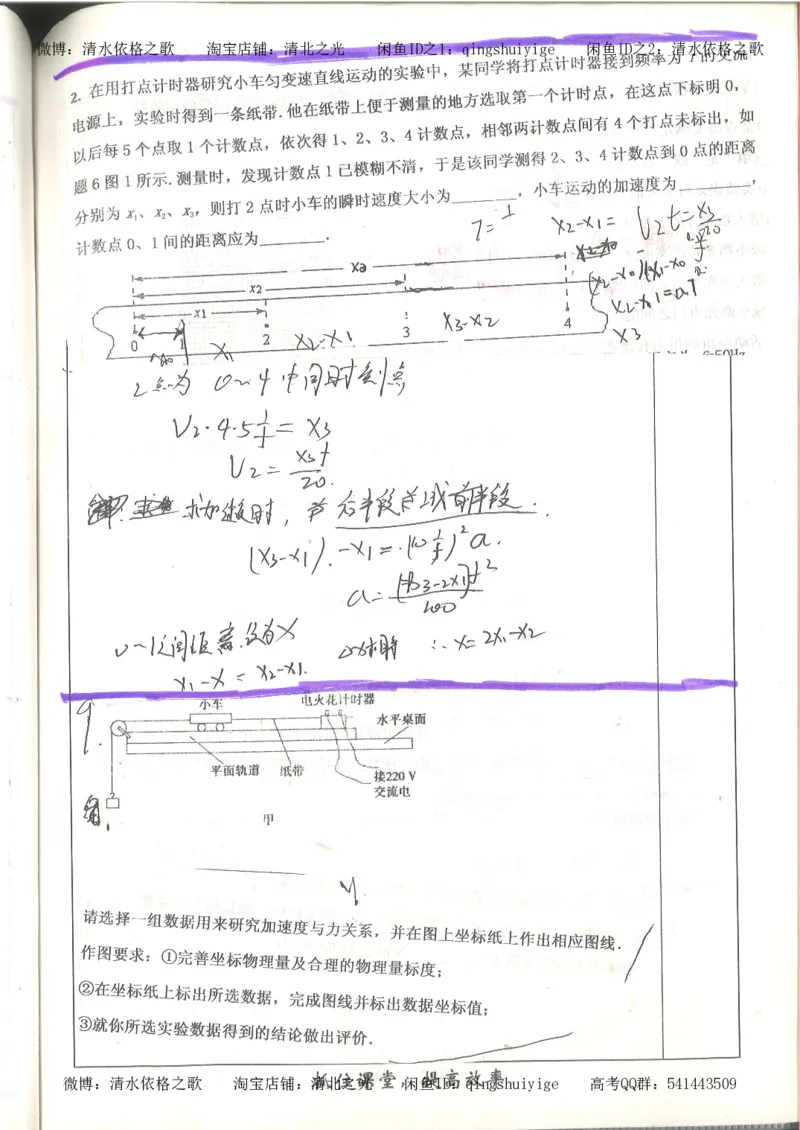 微博：清水依格之歌 淘宝店铺：清北之光 闲鱼ID之1：qingshuiyige 闲鱼ID之2：清水依格之歌
2. 在用打点计时器研究小车匀变速直线运动的实验中，某同学将打点计时器接到频率为 f 的交流
电源上，实验时得到一条纸带.他在纸带上便于测量的地方选取第一个计时点，在这点下标明 0，
以后每 5 个点取 1 个计数点，依次得 1、2、3、4 计数点，相邻两计数点间有 4 个打点未标出，如
题 6 图 1 所示.测量时，发现计数点 1 已模糊不清，于是该同学测得 2、3、4 计数点到 0 点的距离
分别为 x₁、x₂、x₃，则打 2 点时小车的瞬时速度大小为________，小车运动的加速度为________，
计数点 0、1 间的距离应为________.
x₂-x₁=
x3
x2
x1
0 1 2 3 4
x₁ x₂-x₁ x₃-x₂
x₂-x₁=aT²
x₃
2点为 0~4 中间时刻点
V₂·4·5 1/f = x₃
V₂= x₃f/20.
求加速度时，后半段减前半段.
(x₃-x₁)-x₁=(10 1/f)²a.
a= (x₃-2x₁)f²/100
0~1之间距离设为x
∴x=2x₁-x₂
x₁-x=x₂-x₁.
9.
小车
电火花计时器
水平桌面
平面轨道
纸带
接220 V
交流电
甲
请选择一组数据用来研究加速度与力关系，并在图上坐标纸上作出相应图线.
作图要求：①完善坐标物理量及合理的物理量标度；
②在坐标纸上标出所选数据，完成图线并标出数据坐标值；
③就你所选实验数据得到的结论做出评价.
抓住课堂，提高效率
微博：清水依格之歌 淘宝店铺：清北之光 闲鱼ID：qingshuiyige 高考QQ群：541443509